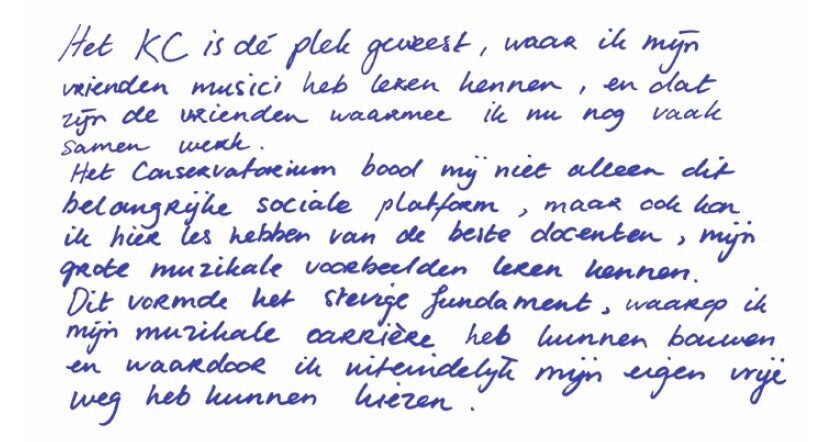 Het KC is dé plek geweest, waar ik mijn
vrienden musici heb leren kennen, en dat
zijn de vrienden waarmee ik nu nog vaak
samen werk.
Het Conservatorium bood mij niet alleen dit
belangrijke sociale platform, maar ook kon
ik hier les hebben van de beste docenten, mijn
grote muzikale voorbeelden leren kennen.
Dit vormde het stevige fundament, waarop ik
mijn muzikale carrière heb kunnen bouwen
en waardoor ik uiteindelijk mijn eigen vrije
weg heb kunnen kiezen.